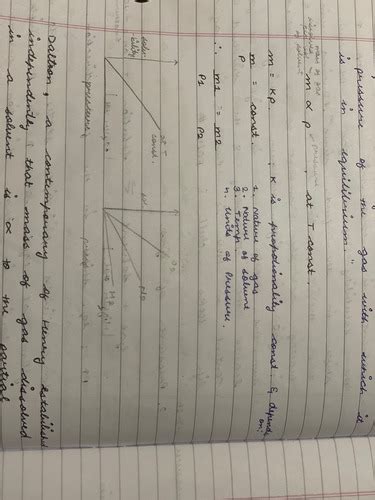 pressure of the gas with which it
is in equilibrium."
mass of gas
dissolved
of solvent
m ∝ p , at T const.
pressure
m = KP. : K is proportionality const & depends
on;
m = const. 1. Nature of gas
P 2. Nature of solvent
3. Temp
4. Units of Pressure
∴ m1 = m2
P1 P2
solu-
bility
T
const.
pressure
H2
N2
O2
Dalton, a contemporary of Henry established
independently that mass of gas dissolved
in a solvent is ∝ to the partial